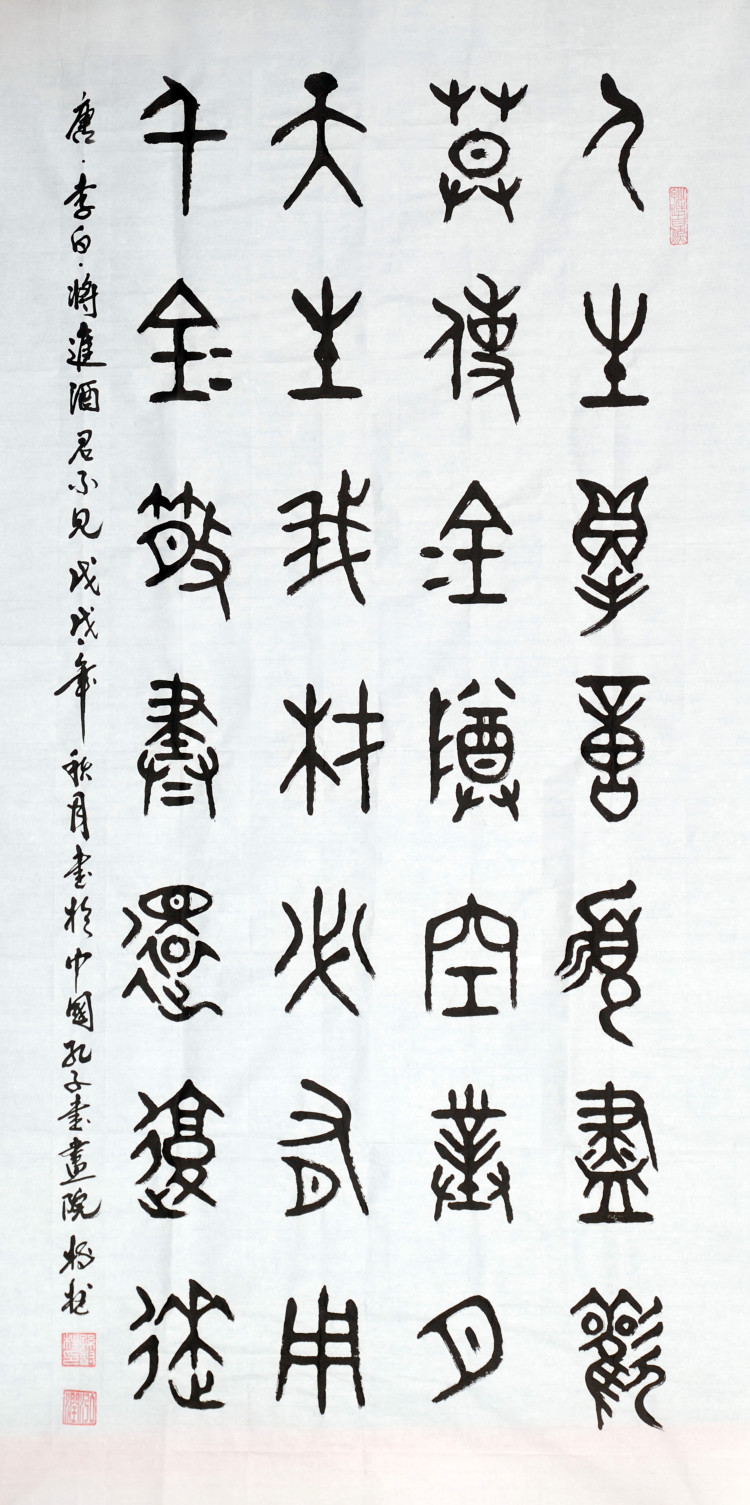 人生得意須盡歡
莫使金樽空對月
天生我材必有用
千金散盡還復來
唐·李白·將進酒君不見戊戌年秋月書於中國孔子書畫院